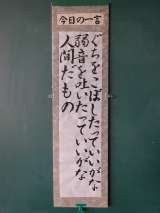 今日の一言
ぐちをこぼしたっていいがな
弱音を吐いたっていいがな
人間だもの